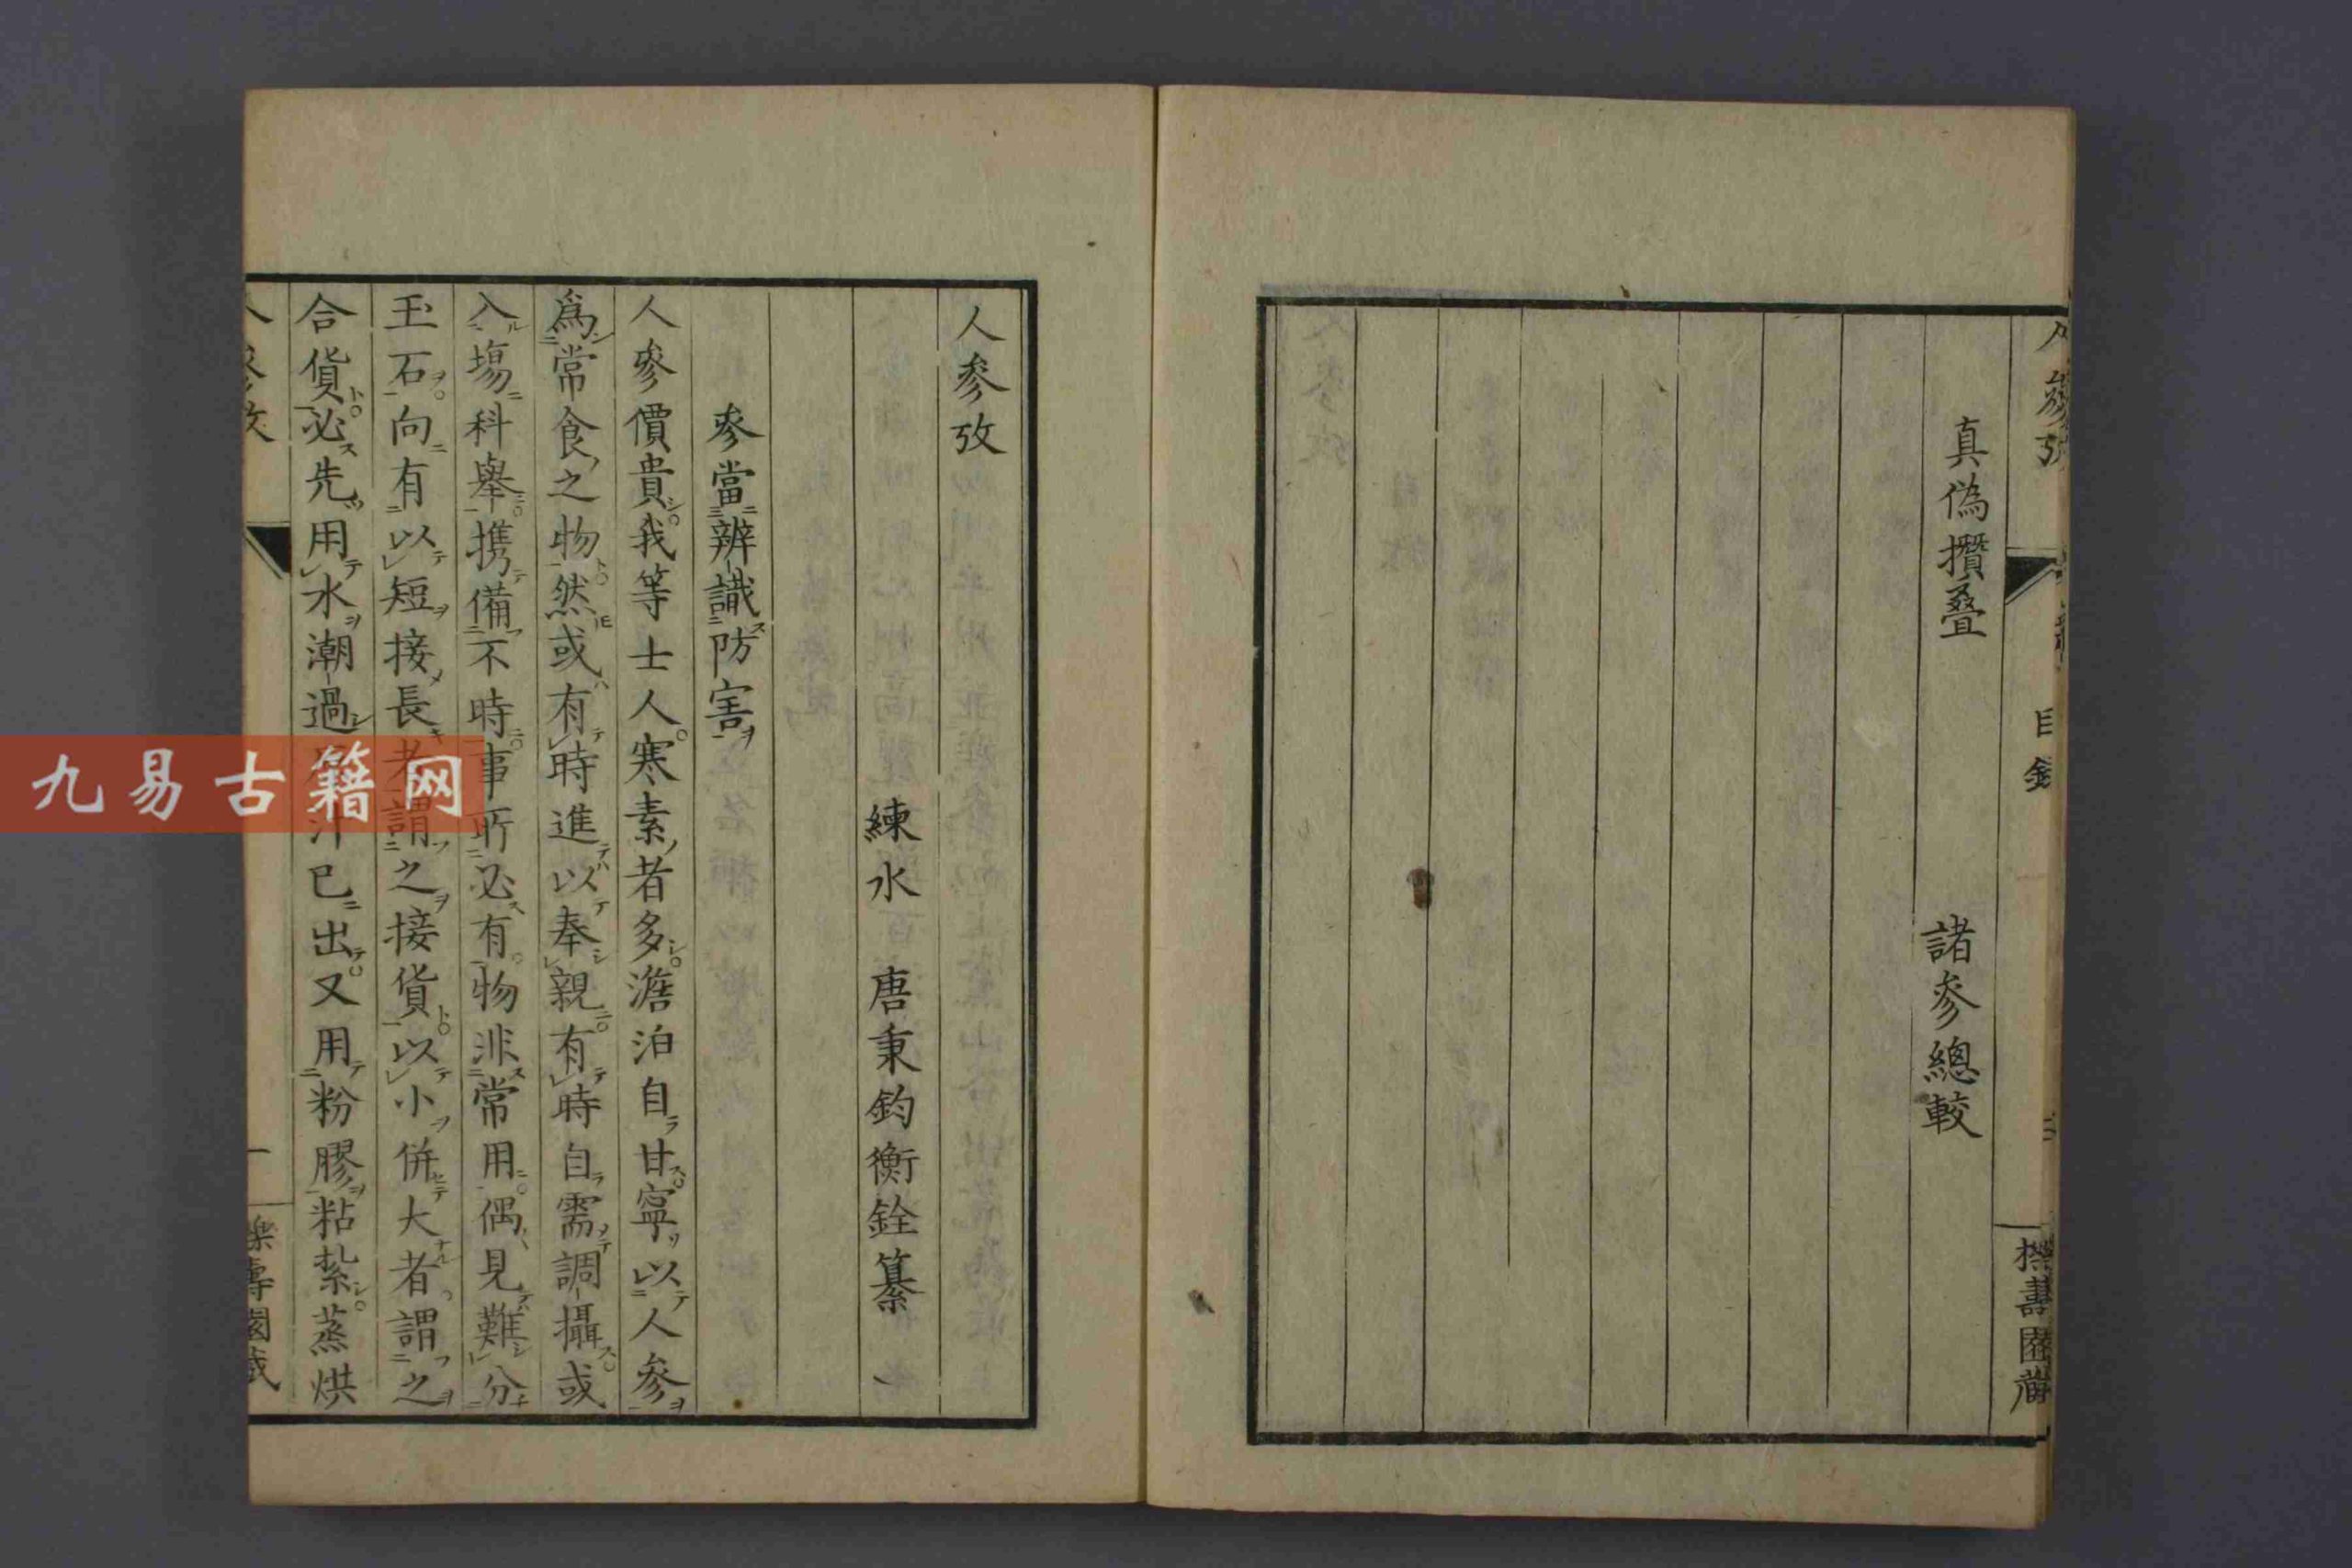 真偽攢叠　諸參總較
目錄
人參攷
練水　唐秉鈞衡銓纂
參當辨識防害
人參價貴我等士人寒素者多澹泊自甘寧以人參
爲常食之物然或有時進以奉親有時自需調攝或
入場科舉携備不時事所必有物非常用偶見難分
玉石向有以短接長者謂之接貨以小併大者謂之
合貨必先用水潮過汁已出又用粉膠粘紮蒸烘
九易古籍网